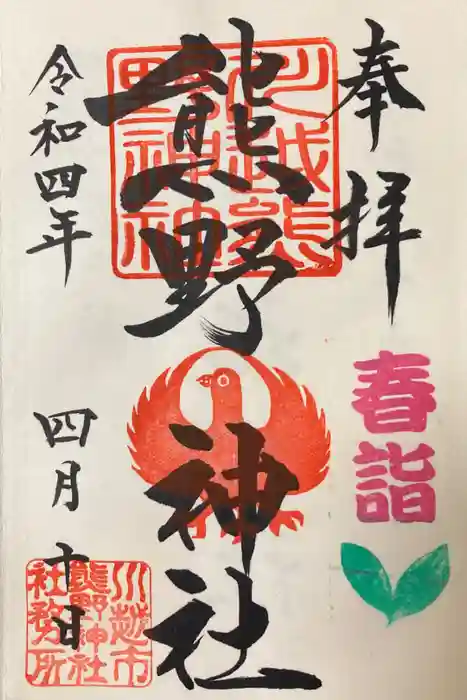 奉拝
春詣
熊野神社
川越熊野神社
令和四年
四月十日
川越市熊野神社社務所